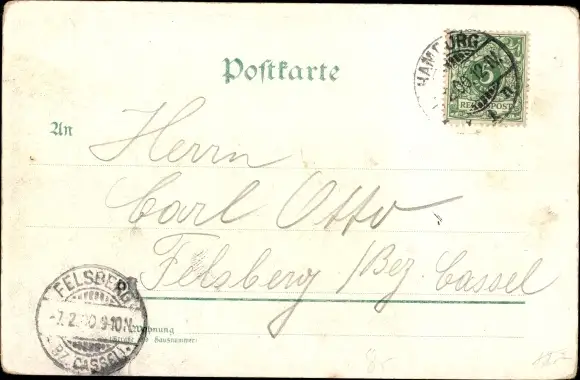 Postkarte
HAMBURG
5
REICHSPOST
An
Herrn
Carl Otto
Felsberg / Bez. Cassel
FELSBERG
-7.2. 00 9-10N.
(BZ. CASSEL)
Wohnung
(Straße und Hausnummer)